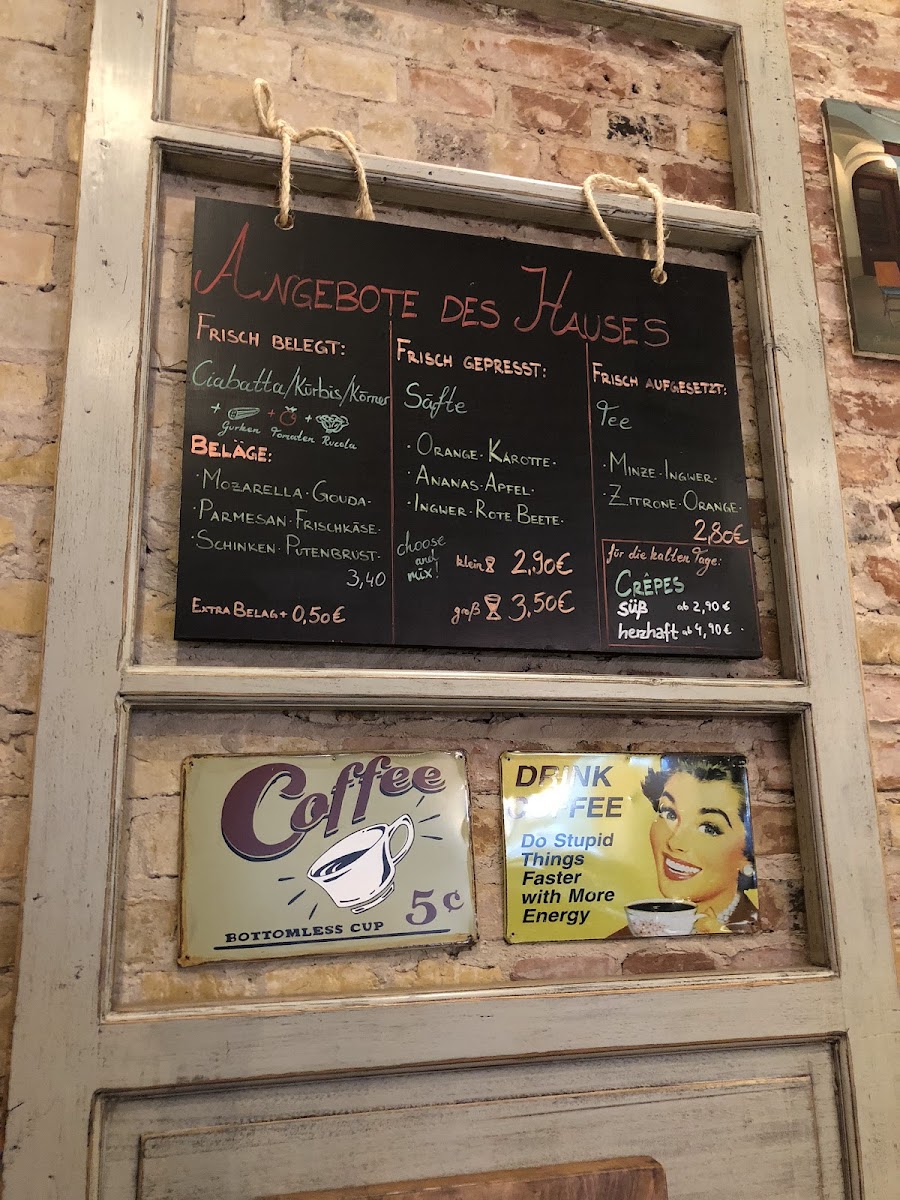 ANGEBOTE DES HAUSES
FRISCH BELEGT:
Ciabatta/Kürbis/Körner
+ + +
Gurken Tomaten Rucola
BELÄGE:
·MOZARELLA·GOUDA·
·PARMESAN·FRISCHKÄSE·
·SCHINKEN·PUTENBRUST·
3,40
EXTRA BELAG + 0,50€
FRISCH GEPRESST:
Säfte
·ORANGE·KAROTTE·
·ANANAS·APFEL·
·INGWER·ROTE BEETE·
choose
and
mix!
klein 2,90€
groß 3,50€
FRISCH AUFGESETZT:
Tee
·MINZE·INGWER·
·ZITRONE·ORANGE·
2,80€
für die kalten Tage:
CRÊPES
süß ab 2,90€
herzhaft ab 4,90€
Coffee
5¢
BOTTOMLESS CUP
DRINK
COFFEE
Do Stupid
Things
Faster
with More
Energy